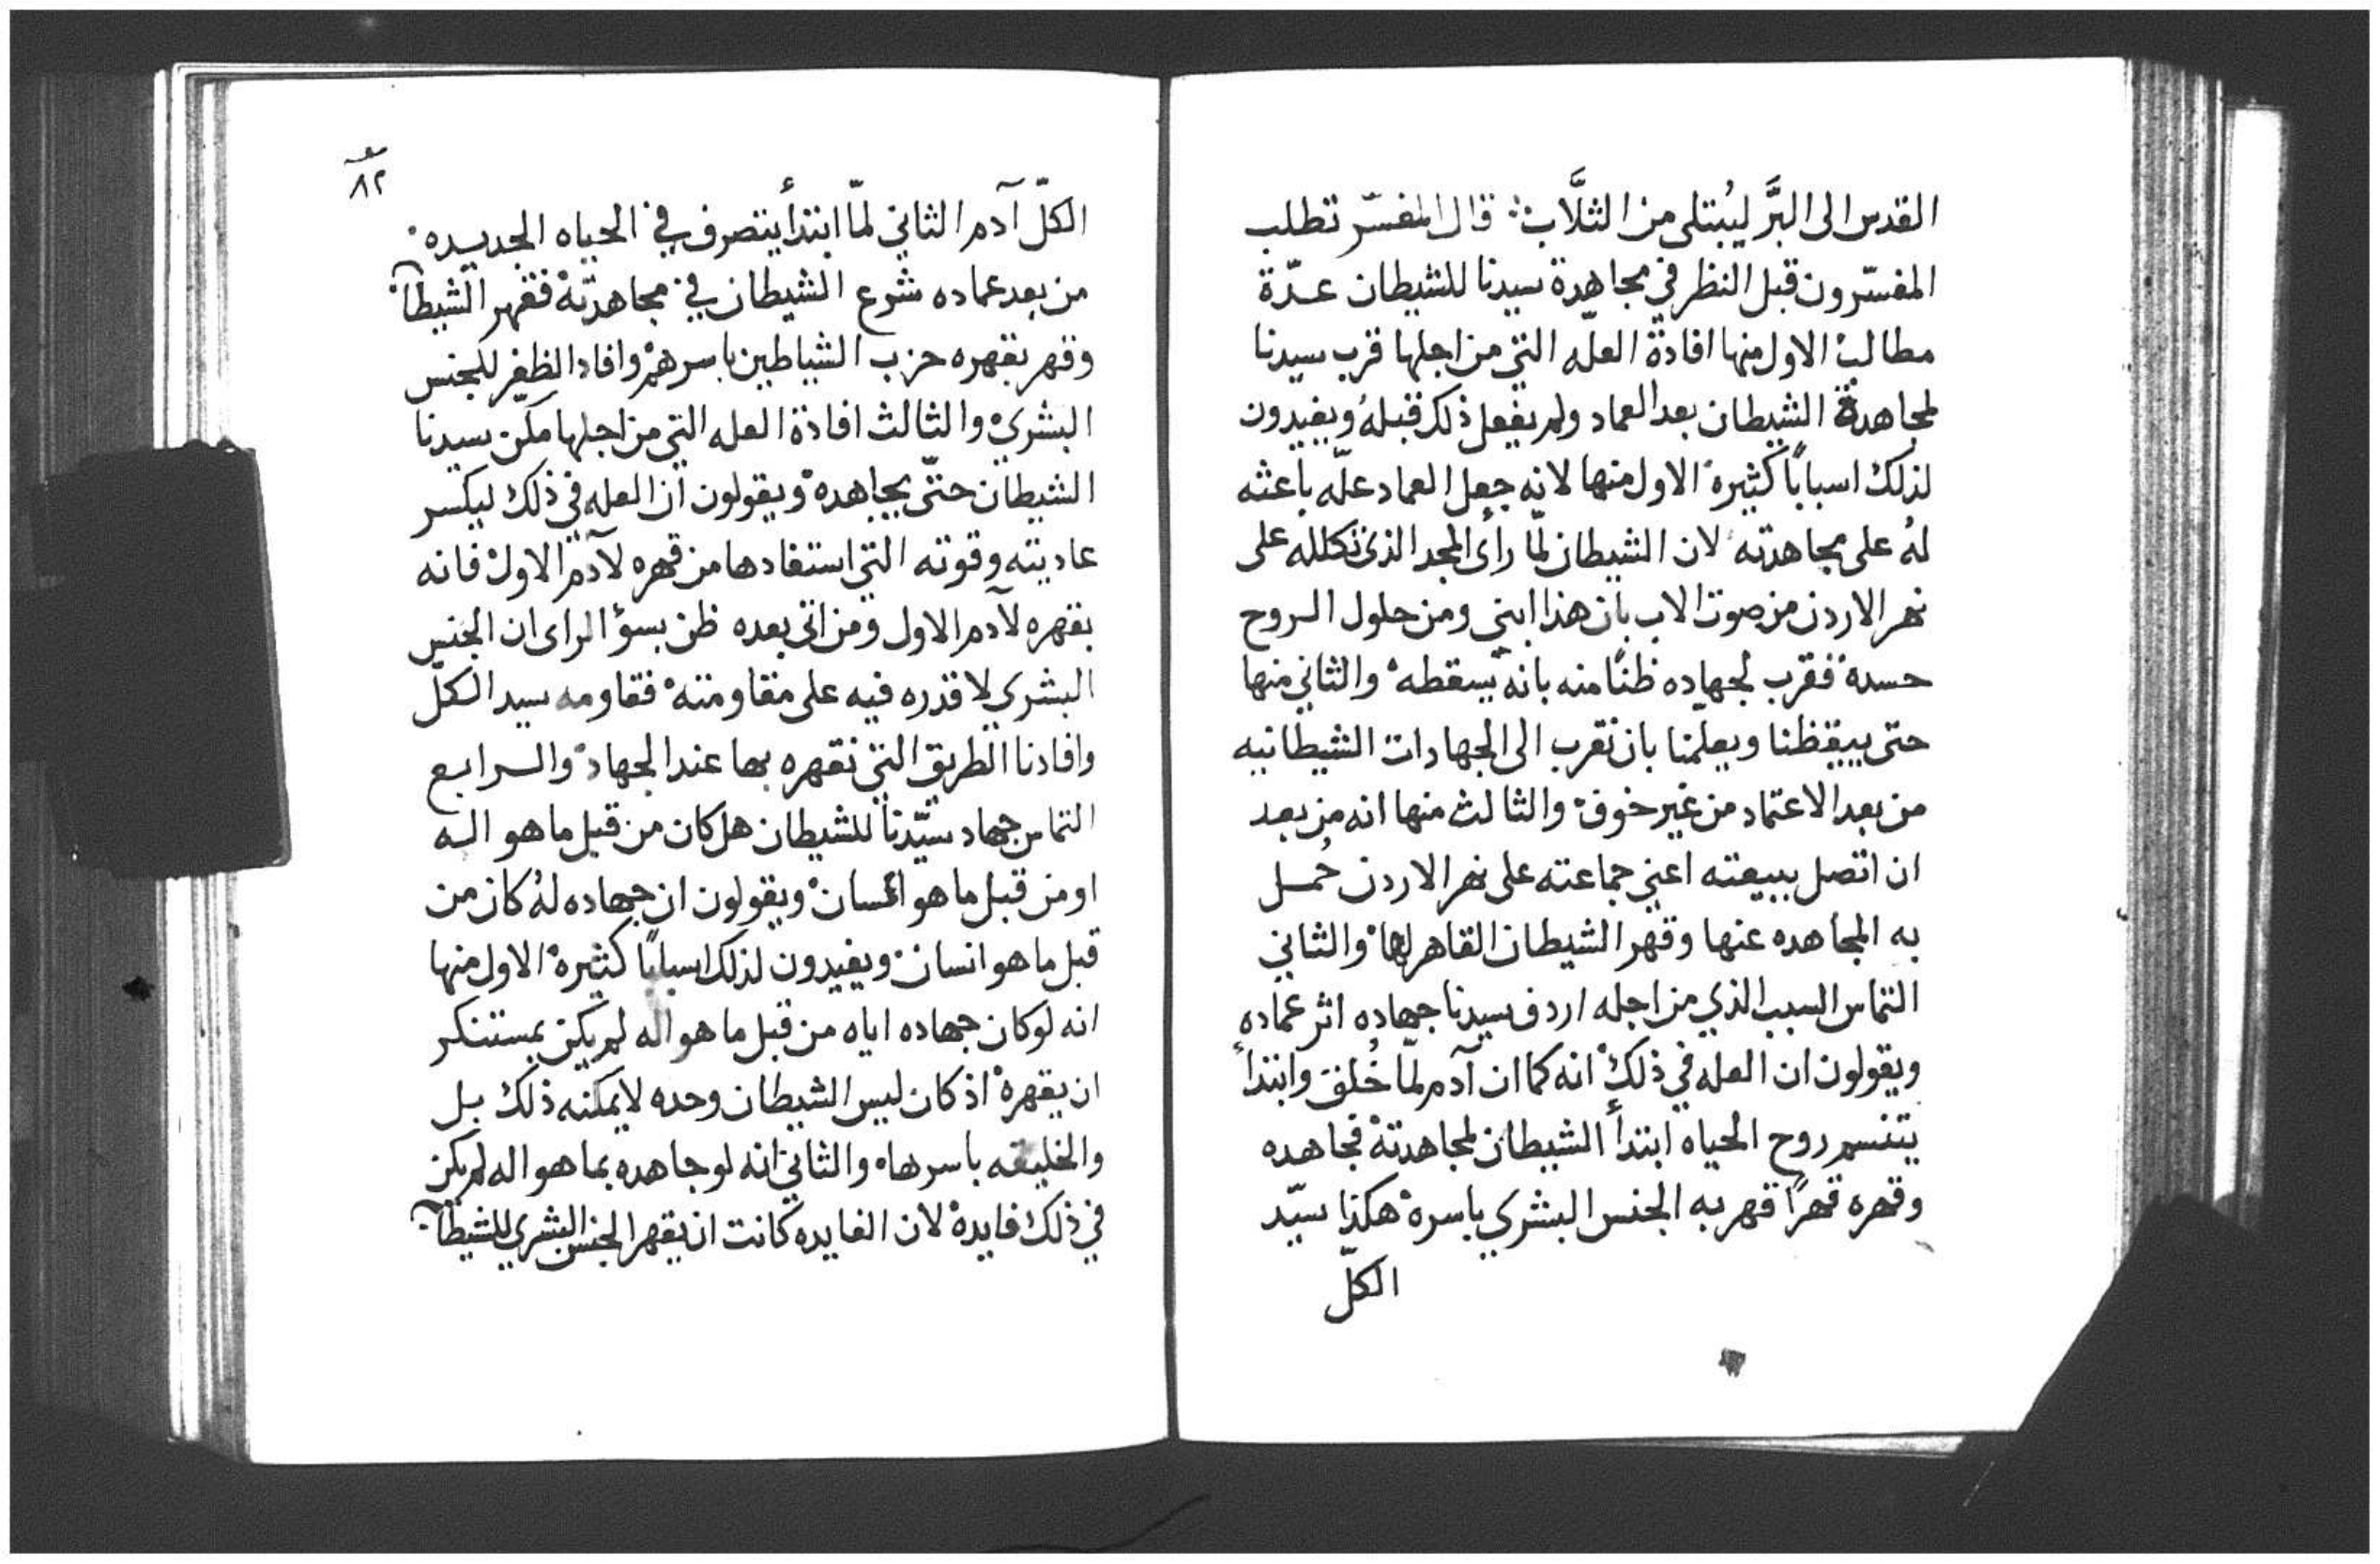 القدس الى البَّر ليُبتلى من الثلَّاب ۞ قال المفسّر تطلب
المفسّرون قبل النظر في مجاهدة سيدنا للشيطان عـدّة
مطالبْ الاول منها افادة العلّه التي من اجلها قرب سيدنا
لمجاهدة الشيطان بعد العماد ولم يفعل ذلك قبلهُ ويفيدون
لذلك اسبابًا كثيرهْ الاول منها لانه جعل العماد علّه باعثه
لهُ على مجاهدته لان الشيطان لمّا رأى المجد الذي تكلله على
نهر الاردن من صوت الاب بان هذا ابني ومن حلول الروح
حسدهُ فقرب لجهاده ظنًا منه بانه يسقطهْ والثاني منها
حتى ييقظنا ويعلمنا بان نقرب الى الجهادات الشيطانيه
من بعد الاعتماد من غير خوفْ والثالث منها انه من بعد
ان اتصل ببيعته اعني جماعته على نهر الاردن حُمـل
به المجاهده عنها وقهر الشيطان القاهر لهاْ والثاني
التماس السبب الذي من اجله اردف سيدنا جهاده اثر عماده
ويقولون ان العله في ذلكْ انه كما ان آدم لمّا خُلق وابتدأ
يتنسم روح الحياه ابتدأ الشيطان لمجاهدتهْ فجاهده
وقهره قهرًا قهر به الجنس البشري باسرهْ هكذا سيّد
الكلّ
٨٢
الكلّ آدم الثاني لمّا ابتدأ يتصرف في الحياه الجديده
من بعد عماده شرع الشيطان في مجاهدتهْ فقهر الشيطآن
وقهر بقهره حزب الشياطين باسرهمْ وافاد الظفر للجنس
البشريْ والثالث افادة العله التي من اجلها مكّن سيدنا
الشيطان حتّى يجاهدهْ ويقولون ان العله في ذلك ليكسر
عاديته وقوته التي استفادها من قهره لآدم الاولْ فانه
بقهره لآدم الاول ومن اتى بعده ظن بسؤ الراى ان الجنس
البشري لا قدره فيه على مقاومتهْ فقاومه سيد الكلّ
وافادنا الطريق التي نقهره بها عند الجهادْ والـرابـع
التماس جهاد سيّدنا للشيطان هل كان من قبل ما هو اله
او من قبل ما هو انسانْ ويقولون ان جهاده لهُ كان من
قبل ما هو انسانْ ويفيدون لذلك اسبابًا كثيرهْ الاول منها
انه لو كان جهاده اياه من قبل ما هو اله لم يكن بمستنكر
ان يقهرهْ اذ كان ليس الشيطان وحده لا يمكنه ذلك بـل
والخليقه باسرهاْ والثاني انه لو جاهده بما هو اله لم يكن
في ذلك فايدهْ لان الفايده كانت ان يقهر الجنس البشري للشيطآن